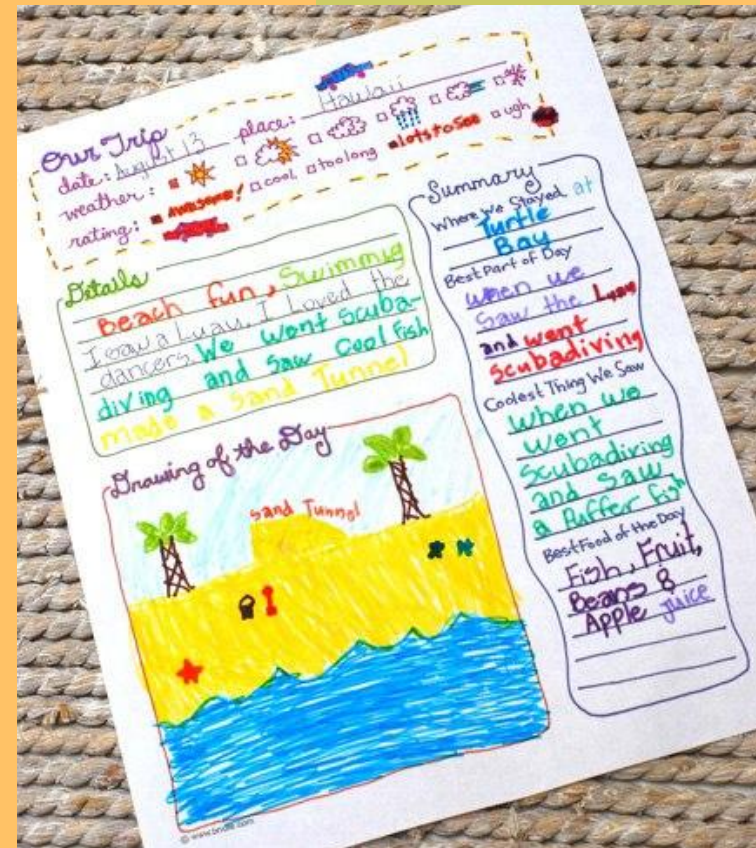 Our Trip
date: August 13 place: Hawaii
weather:
rating: AWESOME! cool too long lots to see ugh
Details
Beach fun, Swimmig
I saw a Luau. I Loved the
dancers. We went Scuba-
diving and saw cool fish
made a sand Tunnel
Drawing of the Day
Sand Tunnel
Summary
Where We Stayed at
Turtle
Bay
Best Part of Day
when we
Saw the Luau
and went
scubadiving
Coolest Thing We Saw
when we
went
Scubadiving
and saw
a Puffer fish
Best Food of the Day
Fish, Fruit,
Beans &
Apple juice